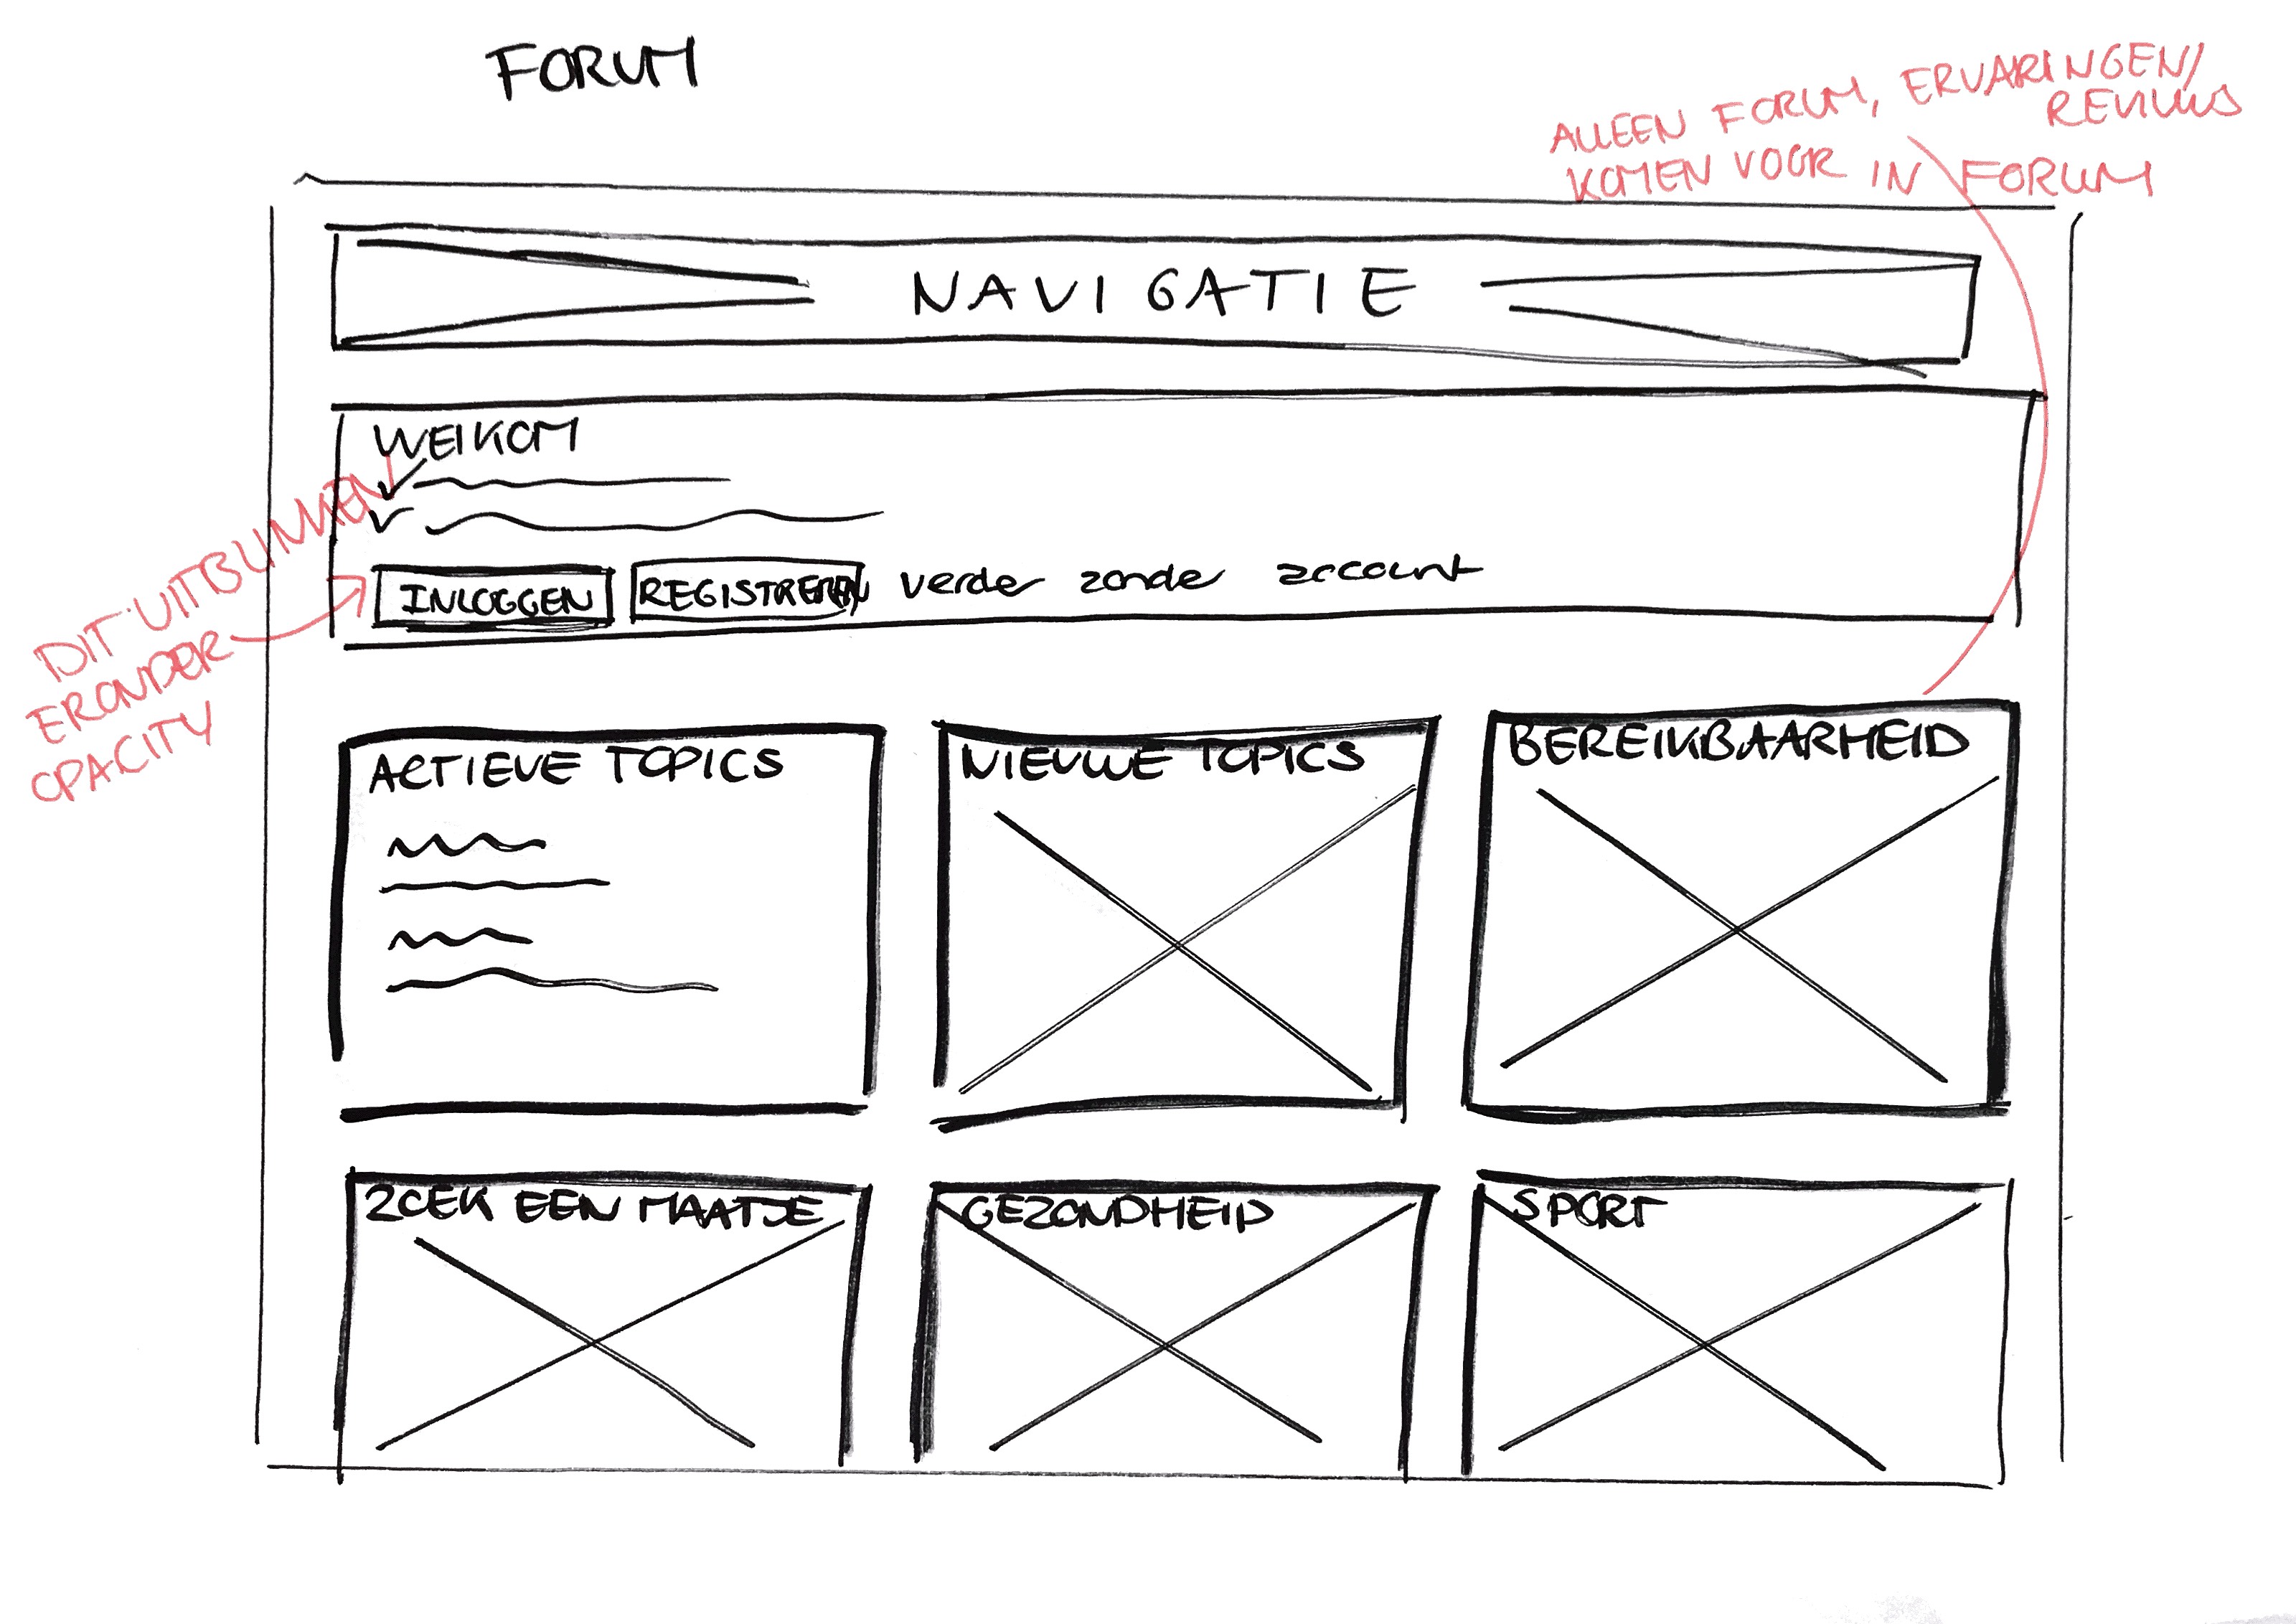 FORUM
ALLEEN FORUM, ERVARINGEN/
REVIEWS
KOMEN VOOR IN FORUM
NAVIGATIE
WELKOM
INLOGGEN
REGISTREREN
verder zonder account
DIT UITBLINKEN
ERONDER
OPACITY
ACTIEVE TOPICS
NIEUWE TOPICS
BEREIKBAARHEID
ZOEK EEN MAATJE
GEZONDHEID
SPORT